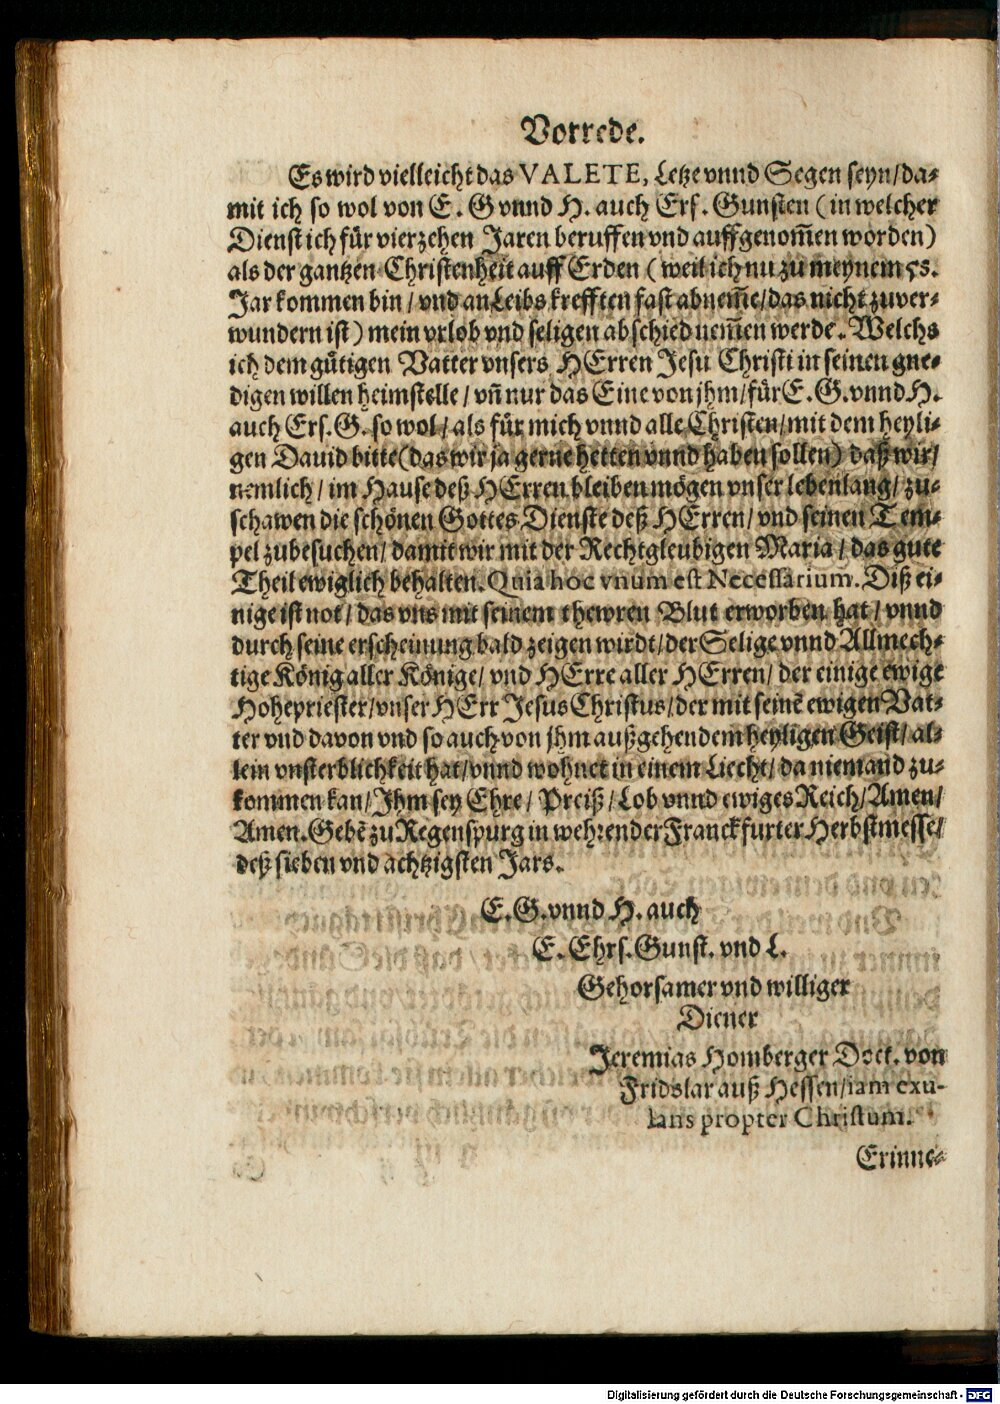 Vorrede.
Es wird vielleicht das VALETE, Letze vnnd Segen seyn/da-
mit ich so wol von E. G vnnd H. auch Erf. Gunsten (in welcher
Dienst ich für vierzehen Jaren beruffen vnd auffgenom̃en worden)
als der gantzen Christenheit auff Erden (weil ich nu zu meynem 58.
Jar kommen bin/ vnd an Leibs krefften fast abnem̃e/das nicht zuver-
wundern ist) mein vrlob vnd seligen abschied nem̃en werde. Welchs
ich dem gütigen Vatter vnsers HErren Jesu Christi in seinen gne-
digen willen heimstelle/ vñ nur das Eine von jhm/für E. G. vnnd H.
auch Erf. G. so wol/ als für mich vnnd alle Christen/mit dem heyli-
gen Dauid bitte (das wir ja gerne hetten vnnd haben sollen) daß wir/
nemlich/ im Hause deß HErren bleiben mögen vnser lebenlang/ zu-
schawen die schönen Gottes Dienste deß HErren/ vnd seinen Tem-
pel zubesuchen/ damit wir mit der Rechtgleubigen Maria/ das gute
Theil ewiglich behalten. Quia hoc vnum est Necessarium. Diß ei-
nige ist not/ das vns mit seinem thewren Blut erworben hat/ vnnd
durch seine erscheinung bald zeigen wirdt/der Selige vnnd Allmech-
tige König aller Könige/ vnd HErre aller HErren/ der einige ewige
Hohepriester/vnser HErr Jesus Christus/der mit seinẽ ewigen Vat-
ter vnd davon vnd so auch von jhm außgehendem heyligen Geist/ al-
lein vnsterblichkeit hat/vnnd wohnet in einem Liecht/ da niemand zu-
kommen kan/ Ihm sey Ehre/ Preiß/ Lob vnnd ewiges Reich/ Amen/
Amen. Gebẽ zu Regenspurg in wehrender Franckfurter Herbstmesse/
deß sieben vnd achtzigsten Jars.
E. G. vnnd H. auch
E. Ehrs. Gunst. vnd L.
Gehorsamer vnd williger
Diener
Jeremias Homberger Doct. von
Fridslar auß Hessen/iam exu-
lans propter Christum.
Erinne-
Digitalisierung gefördert durch die Deutsche Forschungsgemeinschaft - DFG